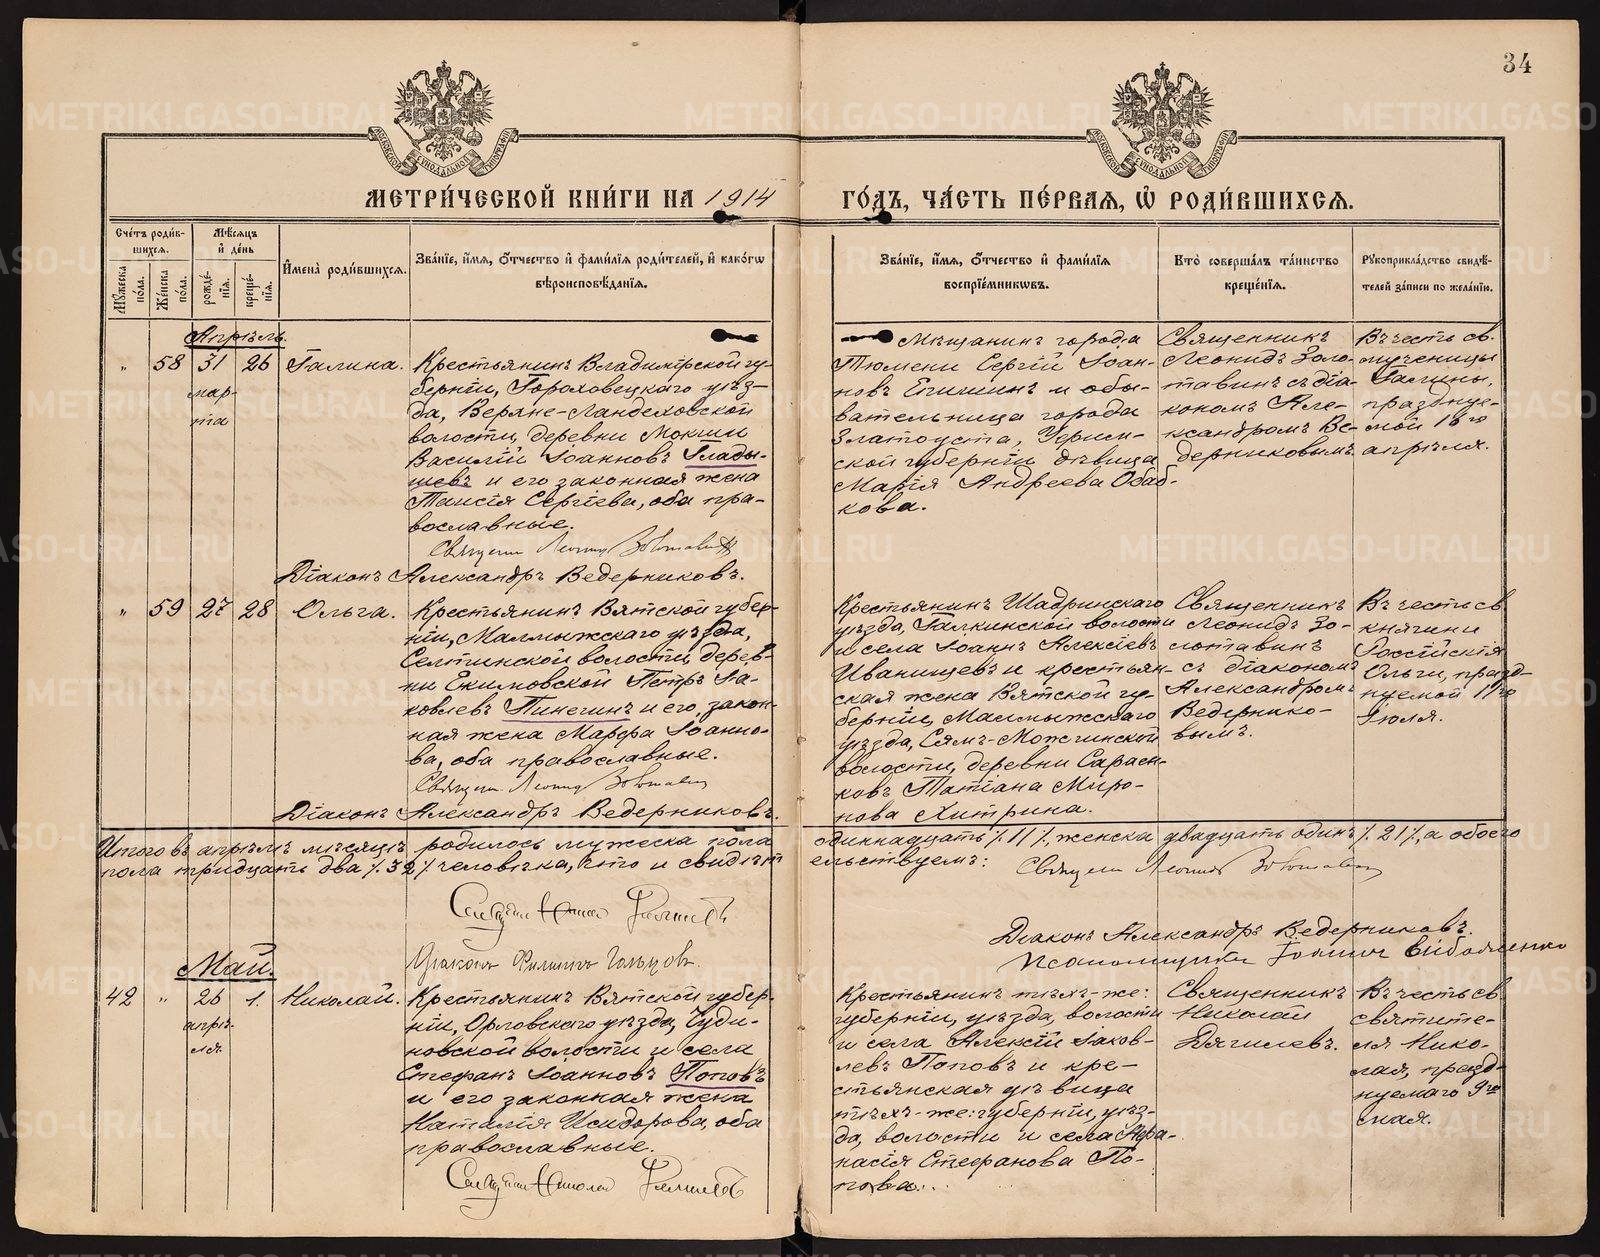 34
МЕТРИ́ЧЕСКОЙ КНИ́ГИ НА 1914 ГО́ДЪ, ЧА́СТЬ ПЕ́РВАѦ, Ѡ҆ РОДИ́ВШИХСѦ.
Сче́тъ роди́в-
шихсѧ.
Мꙋ́жеска по́ла.
Же́нска по́ла.
Мѣ́сѧцъ
и҆ де́нь
рожде́-
нїѧ.
креще́-
нїѧ.
И҆мена̀ роди́вшихсѧ.
Зва́нїе, и҆́мѧ, ѻ҆́тчество и҆ фами́лїѧ роди́телей, и҆ како́гѡ
вѣроисповѣ́данїѧ.
Зва́нїе, и҆́мѧ, ѻ҆́тчество и҆ фами́лїѧ
воспрїе́мникѡвъ.
Кто̀ соверша́лъ та́инство
креще́нїѧ.
Рꙋкоприкла́дство свидѣ́-
телей за́писи по жела́нїю.
Апрѣль.
" 58 31 26 Галина.
мар-
та
Крестьянинъ Владимірской гу-
берніи, Гороховецкаго уѣз-
да, Верхне-Ландеховской
волости, деревни Мокши
Василій Іоанновъ Глады-
шевъ и его законная жена
Таисія Сергіева, оба пра-
вославные.
Діаконъ Александръ Ведерниковъ.
Мѣщанинъ города
Тюмени Сергій Іоан-
новъ и обы-
вательница города
Златоуста, Уфим-
ской губерніи дѣвица
Марія Андреева Обаб-
кова.
Священникъ
Леонидъ Золо-
тавинъ съ діа-
кономъ Але-
ксандромъ Ве-
дерниковымъ.
Въ честь св.
мученицы
Галины,
празднуе-
мой 16го
апрѣля.
" 59 27 28 Ольга.
Крестьянинъ Вятской губер-
ніи, Малмыжскаго уѣзда,
Селтинской волости, дерев-
ни Екимовской Петръ Іа-
ковлевъ Пинегинъ и его закон-
ная жена Марфа Іоанно-
ва, оба православные.
Діаконъ Александръ Ведерниковъ.
Крестьянинъ Шадринскаго
уѣзда, Галкинской волости
и села Іоаннъ Алексіевъ
Иванищевъ и крестьян-
ская жена Вятской гу-
берніи, Малмыжскаго
уѣзда, Сямъ-Можгинской
волости, деревни Сарасн-
ковъ Татіана Миро-
нова Хитрина.
Священникъ
Леонидъ Зо-
лотавинъ
съ діакономъ
Александромъ
Ведернико-
вымъ.
Въ честь св.
княгини
Россійскія
Ольги, празд-
нуемой 11го
іюля.
Итого въ апрѣлѣ мѣсяцѣ родилось мужеска пола одиннадцать /.11/., женска двадцать одинъ /.21/., а обоего
пола тридцать два /.32/. человѣка, что и свидѣтельствуемъ:
Діаконъ Филиппъ Гольцовъ.
Діаконъ Александръ Ведерниковъ.
Май.
42 " 26 1. Николай.
апрѣ-
ля.
Крестьянинъ Вятской губер-
ніи, Орловскаго уѣзда, Чуди-
новской волости и села
Стефанъ Іоанновъ Поповъ
и его законная жена
Наталія Исидорова, оба
православные.
Крестьянинъ тѣхъ-же:
губерніи, уѣзда, волости
и села Алексій Іаков-
левъ Поповъ и кре-
стьянская дѣвица
тѣхъ-же: губерніи, уѣз-
да, волости и села Афа-
насія Стефанова По-
пова...
Священникъ
Николай
Дягилевъ.
Въ честь св.
святите-
ля Нико-
лая, празд-
нуемаго 9го
мая.
METRIKI.GASO-URAL.RU